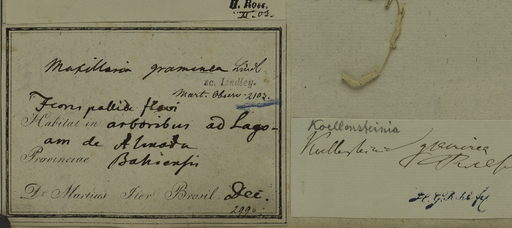 H. Ross.
II. 03.
Maxillaria graminea Lindl.
sc. Lindley.
Mart. Observ. 2102.
Flores pallide flavi
Habitat in arboribus ad Lago-
am de Almada
Provinciae Bahiensis
Dr Martius Iter Brasil. Dec.
Koellensteinia
Koellensteinia graminea
Rchb f
H. G. Rchb. f.